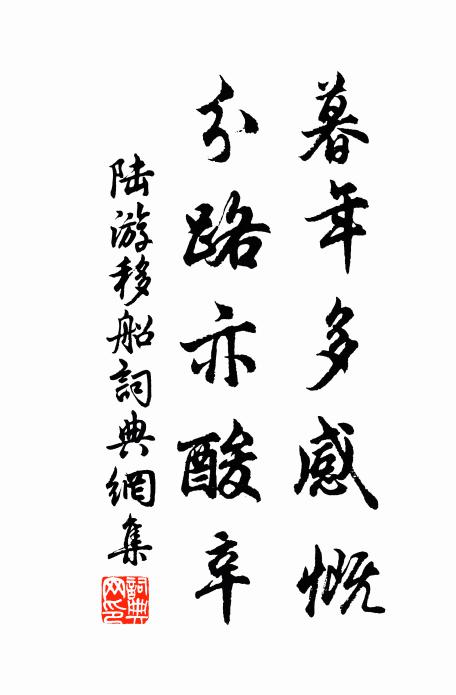 暮年多感慨
分路亦酸辛
陆游移船詞典網集
詞典
网印